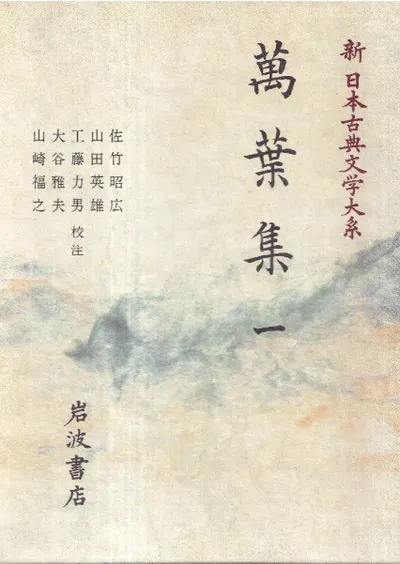 新 日本古典文学大系
萬葉集 一
佐竹昭広
山田英雄
工藤力男 校注
大谷雅夫
山崎福之
岩波書店